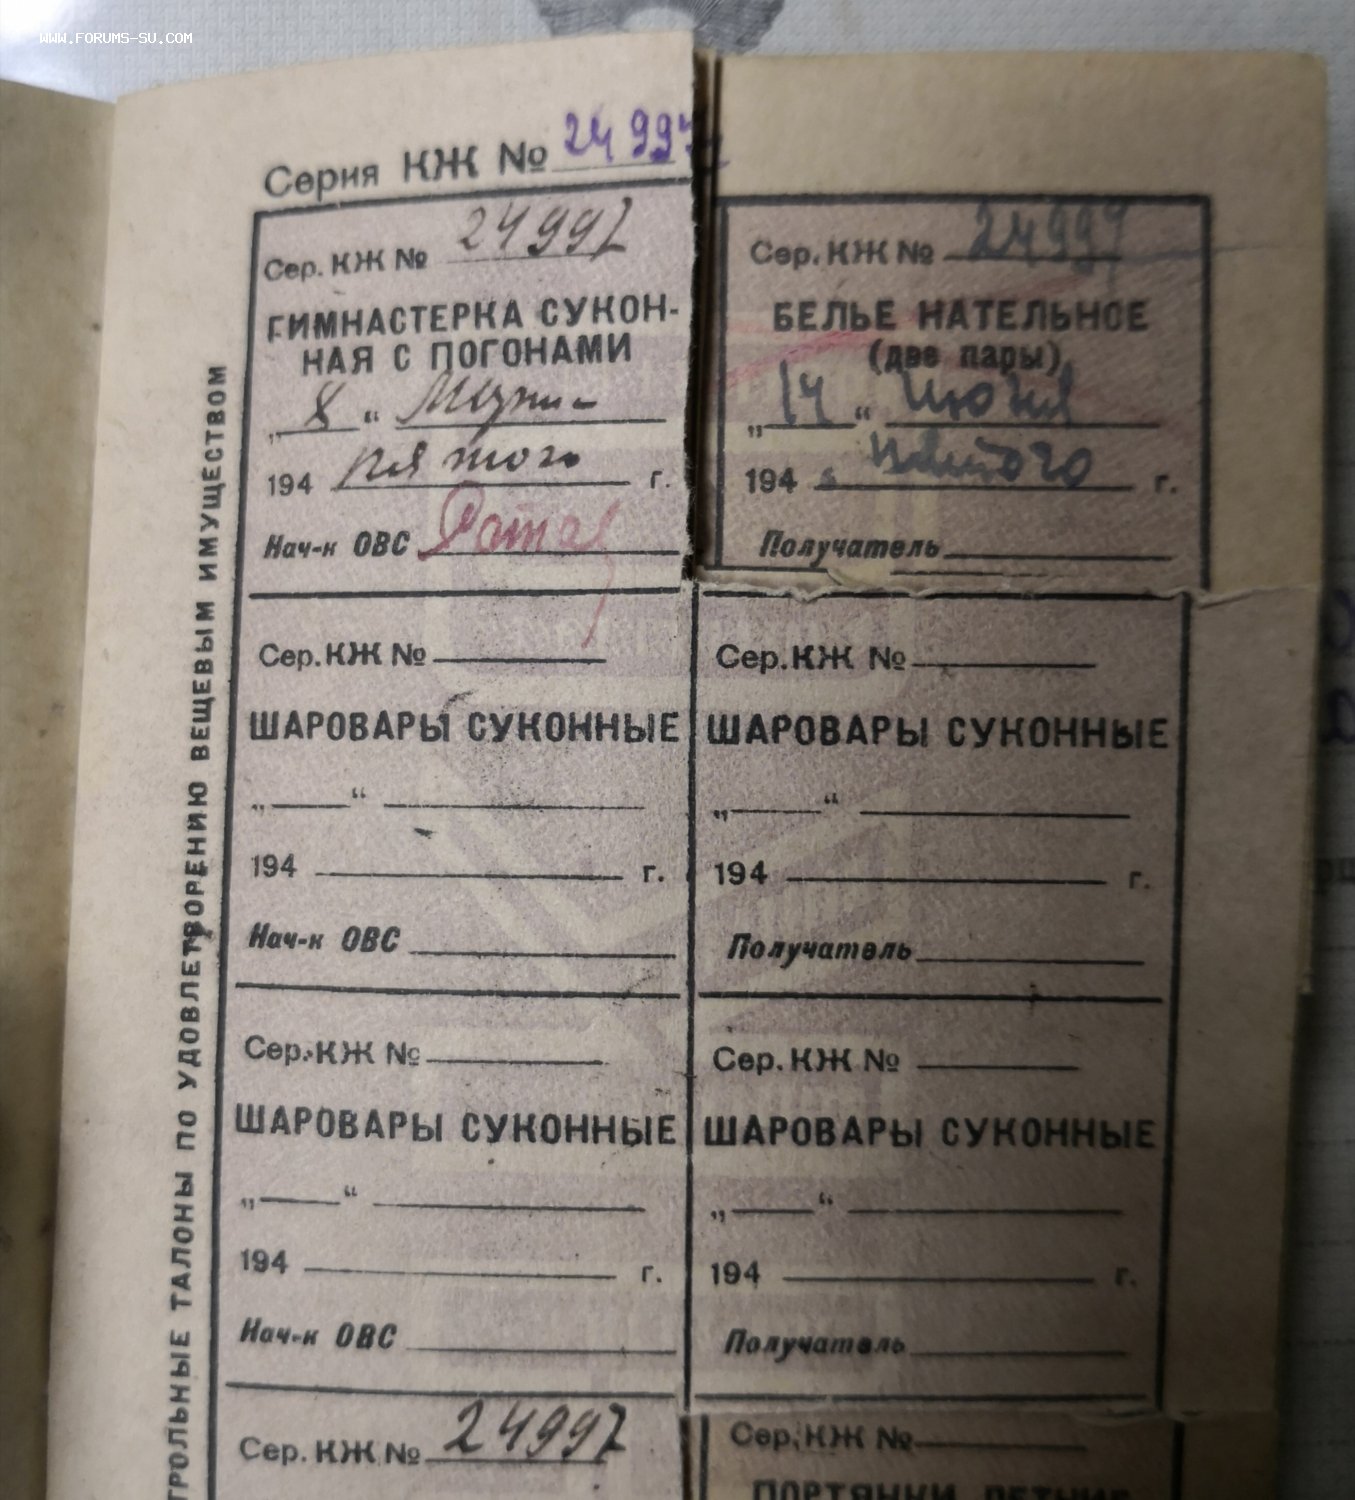 WWW.FORUMS-SU.COM
Серия КЖ № 24997
Сер. КЖ № 24997
ГИМНАСТЕРКА СУКОН-
НАЯ С ПОГОНАМИ
„ 8 “
194 пятого г.
Нач-к ОВС
Сер. КЖ № 24997
БЕЛЬЕ НАТЕЛЬНОЕ
(две пары)
„ 14 “ Июня
194 пятого г.
Получатель
Сер. КЖ №
ШАРОВАРЫ СУКОННЫЕ
„ “
194 г.
Нач-к ОВС
Сер. КЖ №
ШАРОВАРЫ СУКОННЫЕ
„ “
194 г.
Получатель
Сер. КЖ №
ШАРОВАРЫ СУКОННЫЕ
„ “
194 г.
Нач-к ОВС
Сер. КЖ №
ШАРОВАРЫ СУКОННЫЕ
„ “
194 г.
Получатель
Сер. КЖ № 24997
Сер. КЖ №
ПОРТЯНКИ ЛЕТНИЕ
ТРОЛЬНЫЕ ТАЛОНЫ ПО УДОВЛЕТВОРЕНИЮ ВЕЩЕВЫМ ИМУЩЕСТВОМ